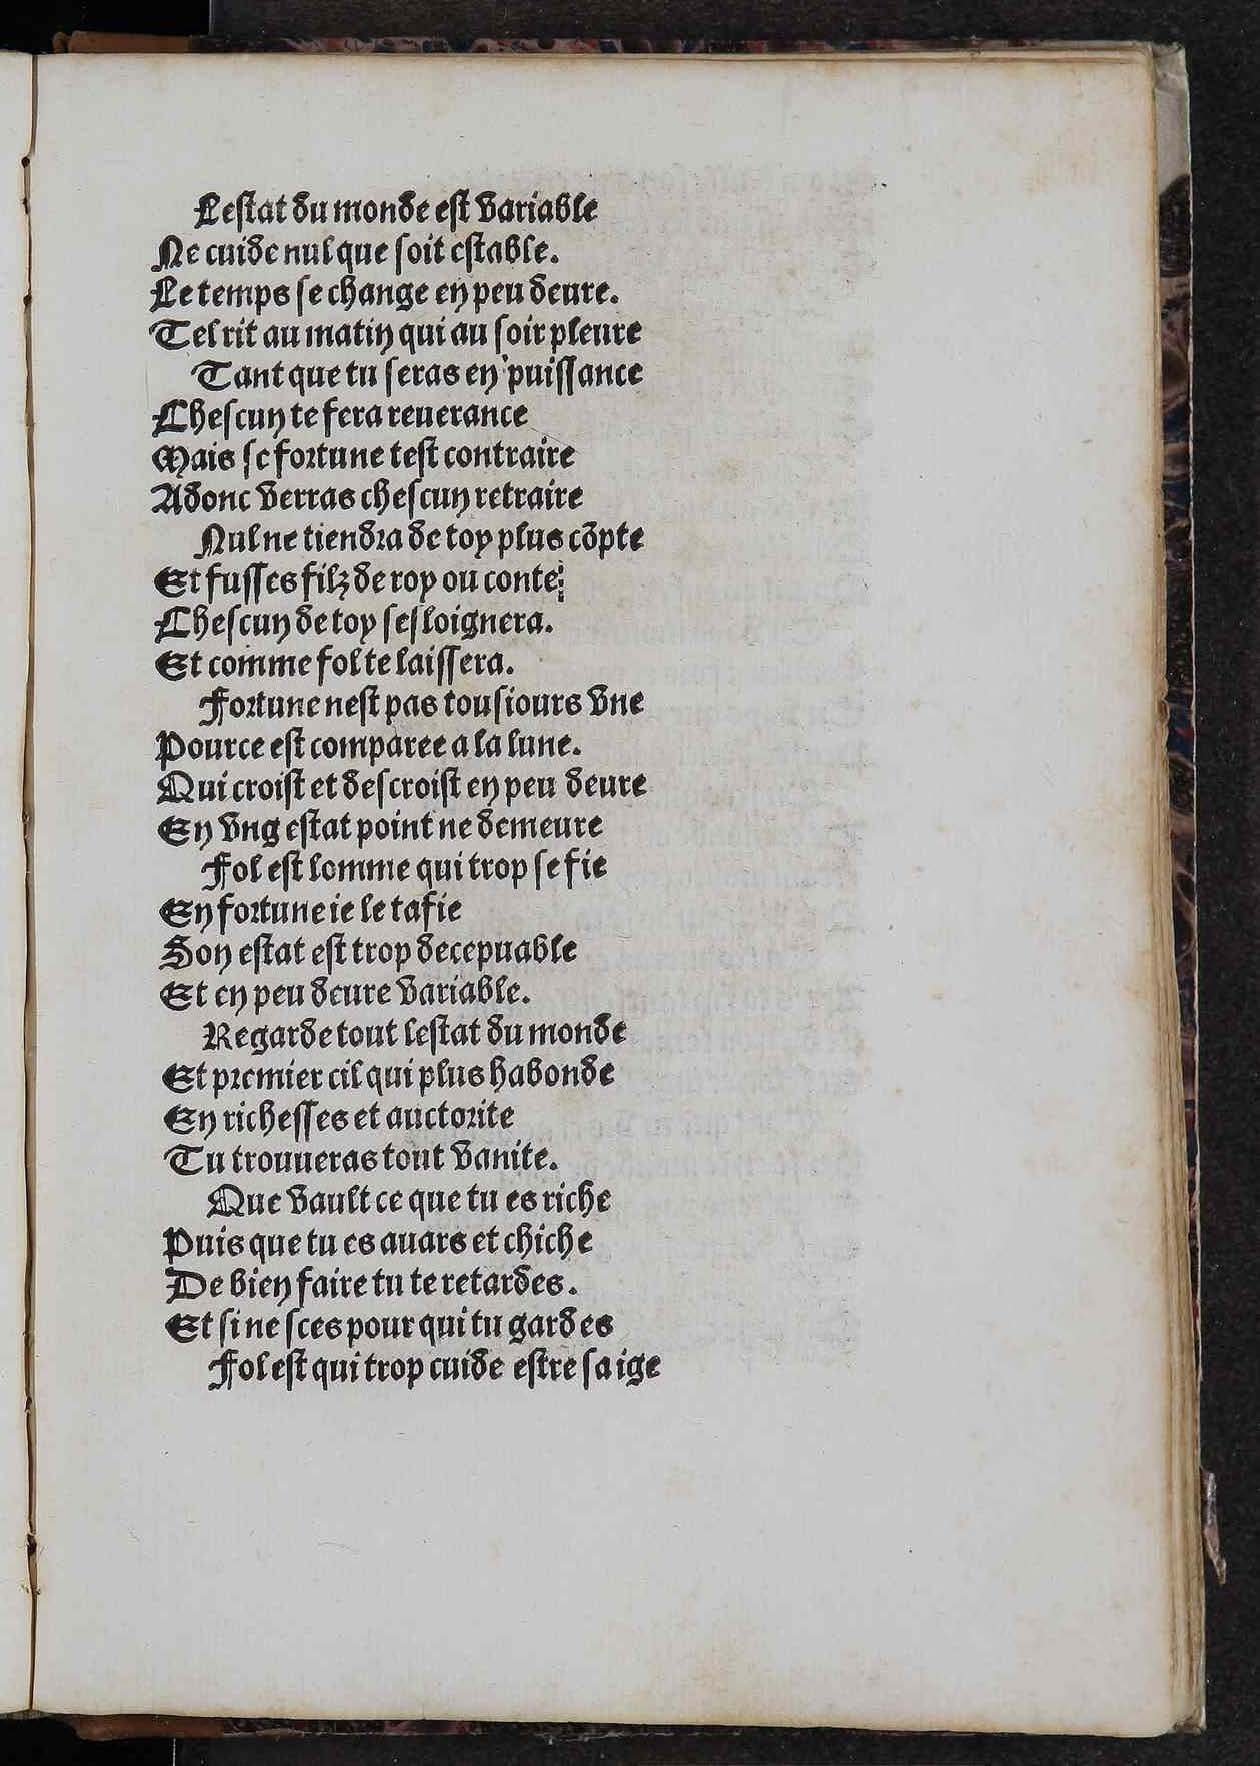 Lestat du monde est variable
Ne cuide nul que soit estable.
Le temps se change en peu deure.
Tel rit au matin qui au soir pleure
Tant que tu seras en puissance
Chescun te fera reuerance
Mais se fortune test contraire
Adonc verras chescun retraire
Nul ne tiendra de toy plus cõpte
Et fusses filz de roy ou conte
Chescun de toy sesloignera.
Et comme fol te laissera.
Fortune nest pas tousiours vne
Pource est comparee a la lune.
Qui croist et descroist en peu deure
En vng estat point ne demeure
Fol est lomme qui trop se fie
En fortune ie le tafie
Son estat est trop decepuable
Et en peu deure variable.
Regarde tout lestat du monde
Et premier cil qui plus habonde
En richesses et auctorite
Tu trouueras tout vanite.
Que vault ce que tu es riche
Puis que tu es auars et chiche
De bien faire tu te retardes.
Et si ne sces pour qui tu gardes
Fol est qui trop cuide estre saige